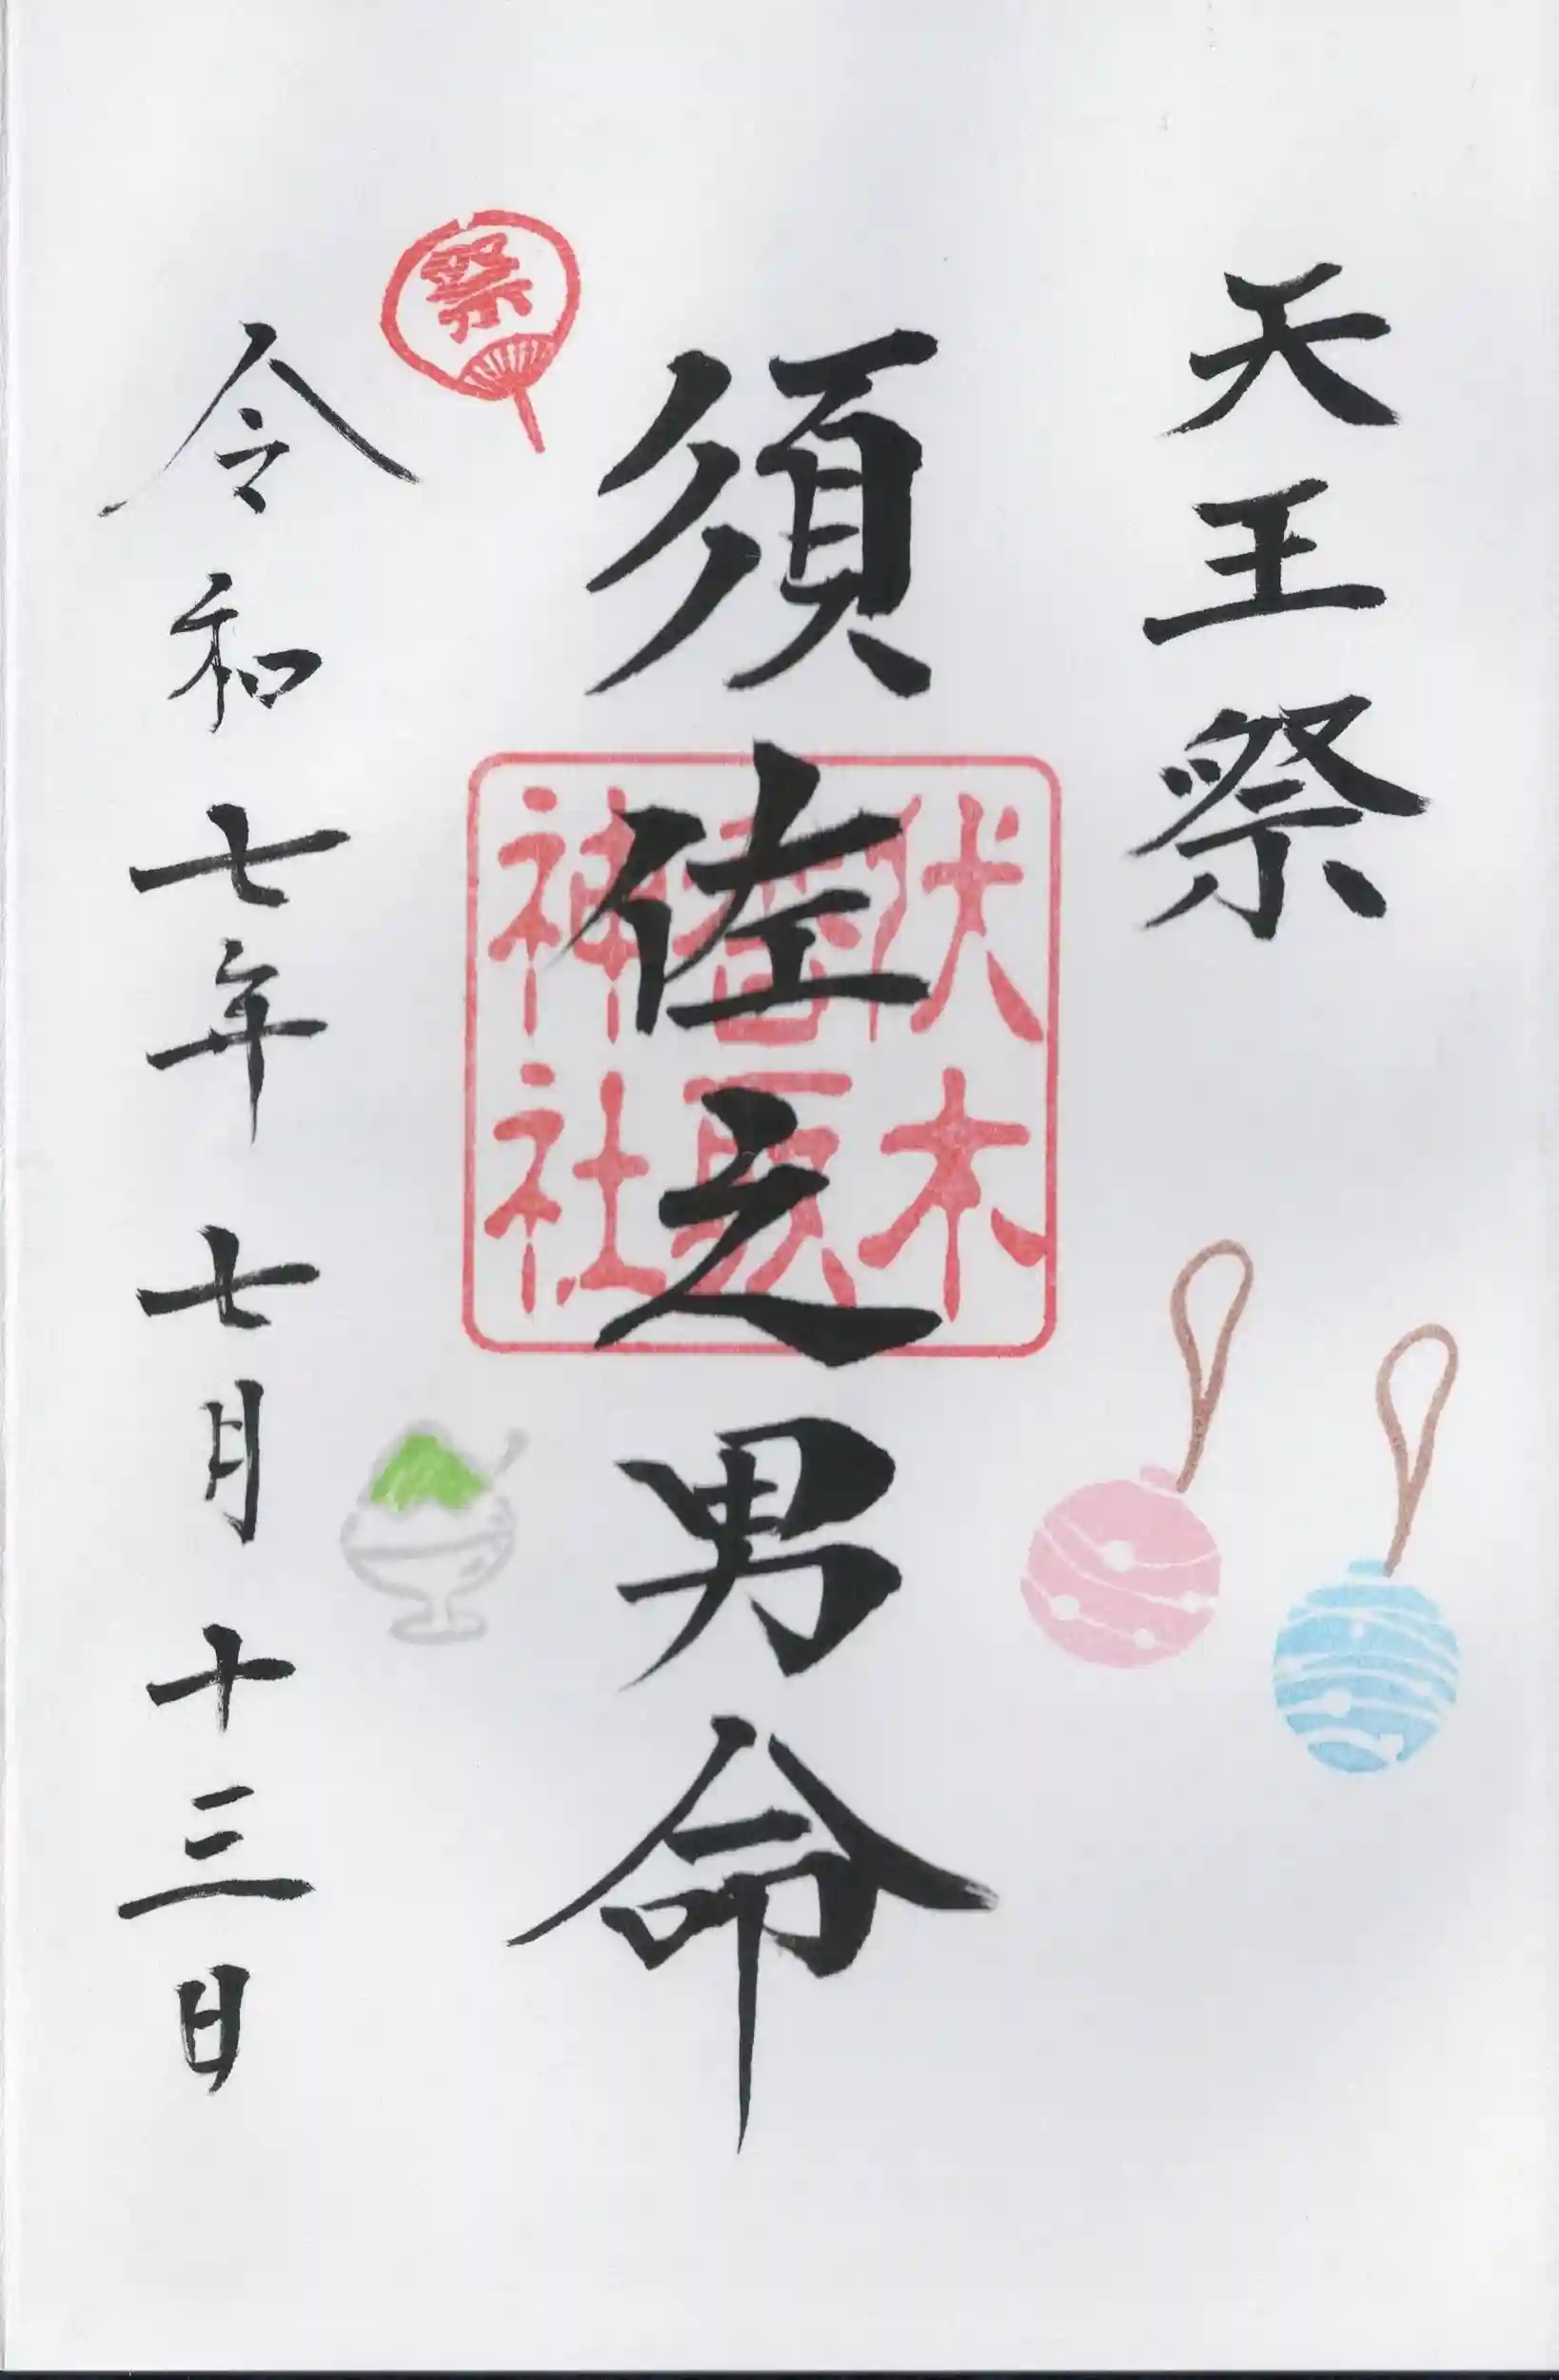 天王祭
須佐之男命
伏木
神社
祭
令和七年 七月 十三日